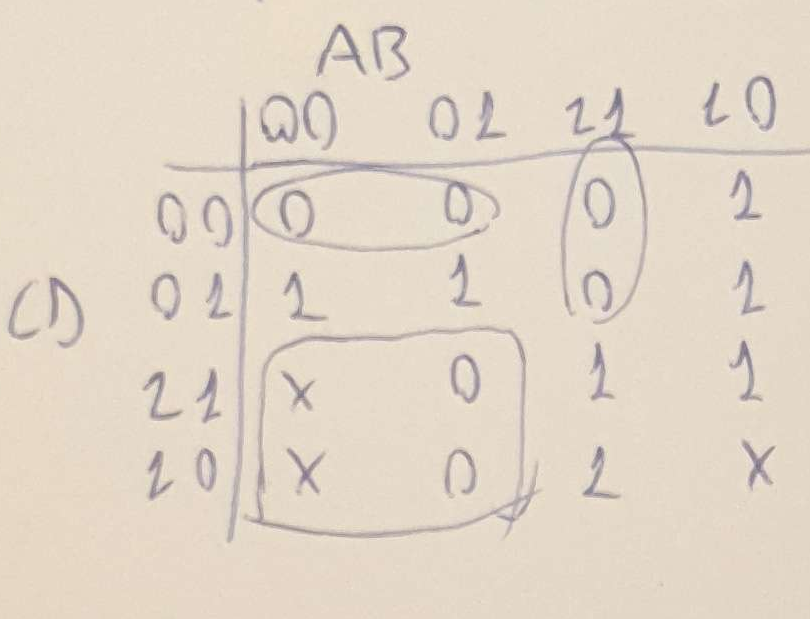 AB
00 01 11 10
00 0 0 0 1
CD 01 1 1 0 1
11 X 0 1 1
10 X 0 1 X